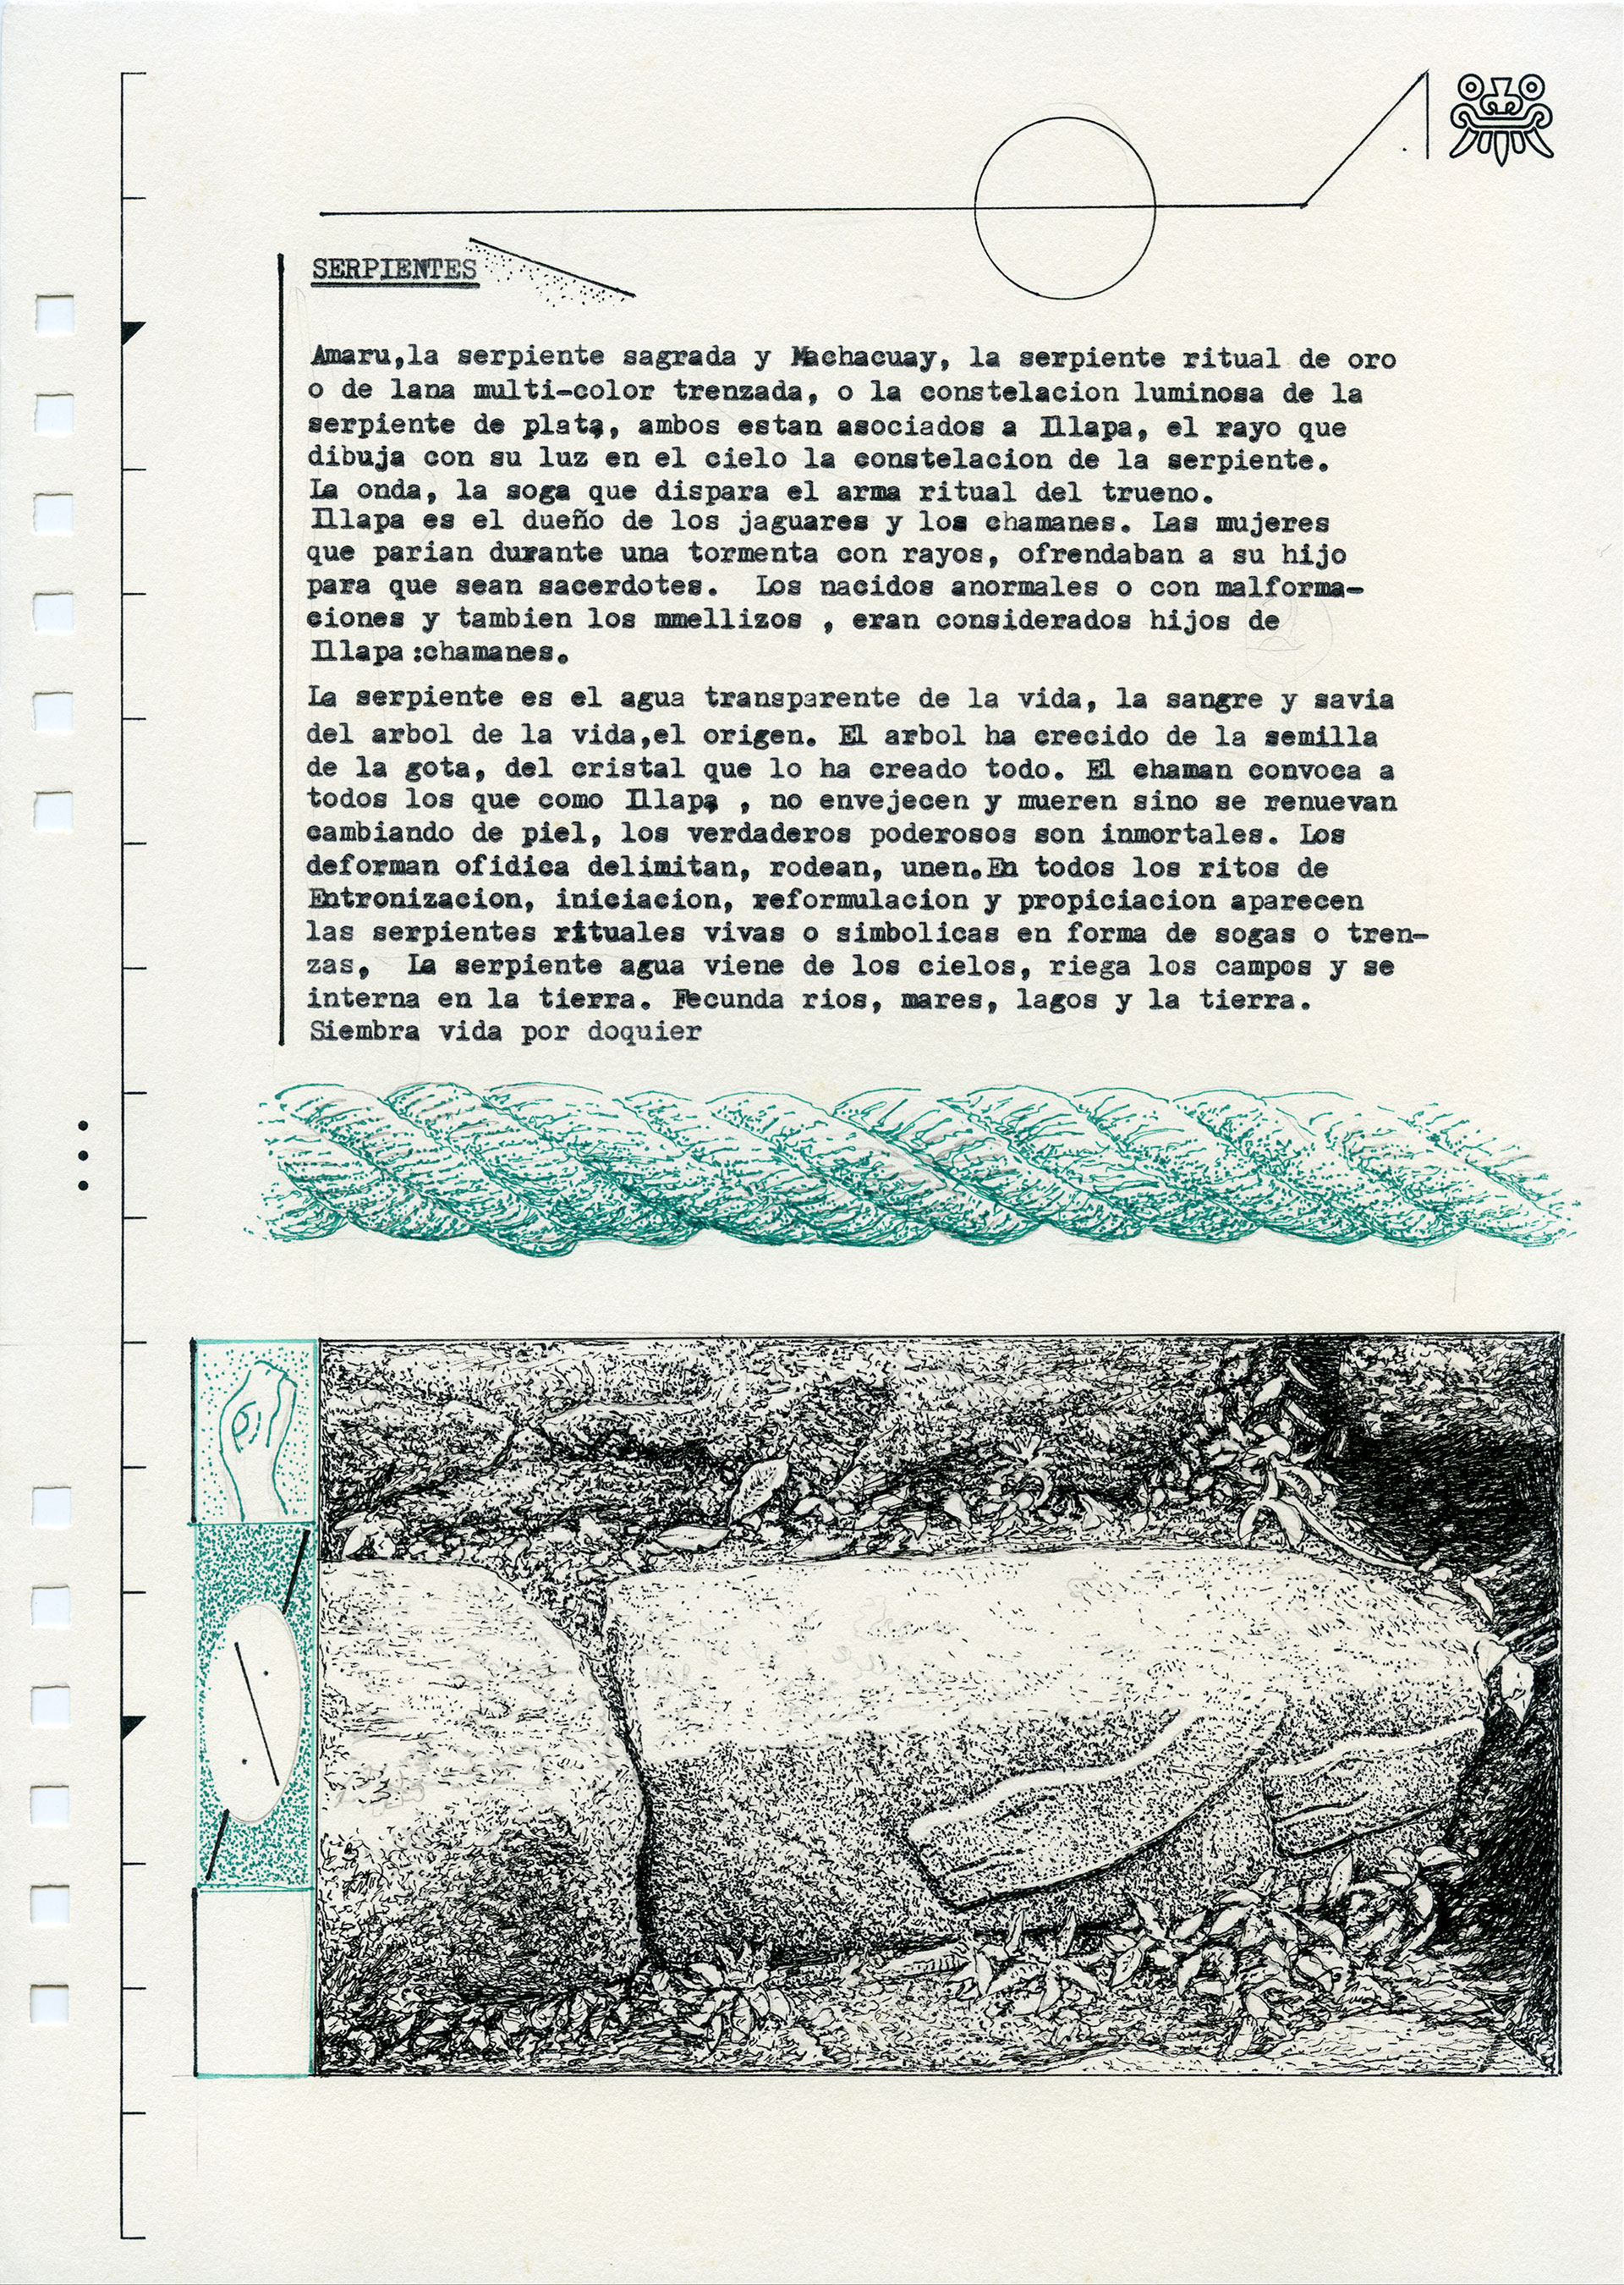 SERPIENTES
Amaru,la serpiente sagrada y Machacuay, la serpiente ritual de oro
o de lana multi-color trenzada, o la constelacion luminosa de la
serpiente de plata, ambos estan asociados a Illapa, el rayo que
dibuja con su luz en el cielo la constelacion de la serpiente.
La onda, la soga que dispara el arma ritual del trueno.
Illapa es el dueño de los jaguares y los chamanes. Las mujeres
que parian durante una tormenta con rayos, ofrendaban a su hijo
para que sean sacerdotes.  Los nacidos anormales o con malforma-
ciones y tambien los mmellizos , eran considerados hijos de
Illapa :chamanes.
La serpiente es el agua transparente de la vida, la sangre y savia
del arbol de la vida,el origen. El arbol ha crecido de la semilla
de la gota, del cristal que lo ha creado todo. El chaman convoca a
todos los que como Illapa , no envejecen y mueren sino se renuevan
cambiando de piel, los verdaderos poderosos son inmortales. Los
deforman ofidica delimitan, rodean, unen.En todos los ritos de
Entronizacion, iniciacion, reformulacion y propiciacion aparecen
las serpientes rituales vivas o simbolicas en forma de sogas o tren-
zas,  La serpiente agua viene de los cielos, riega los campos y se
interna en la tierra. Fecunda rios, mares, lagos y la tierra.
Siembra vida por doquier